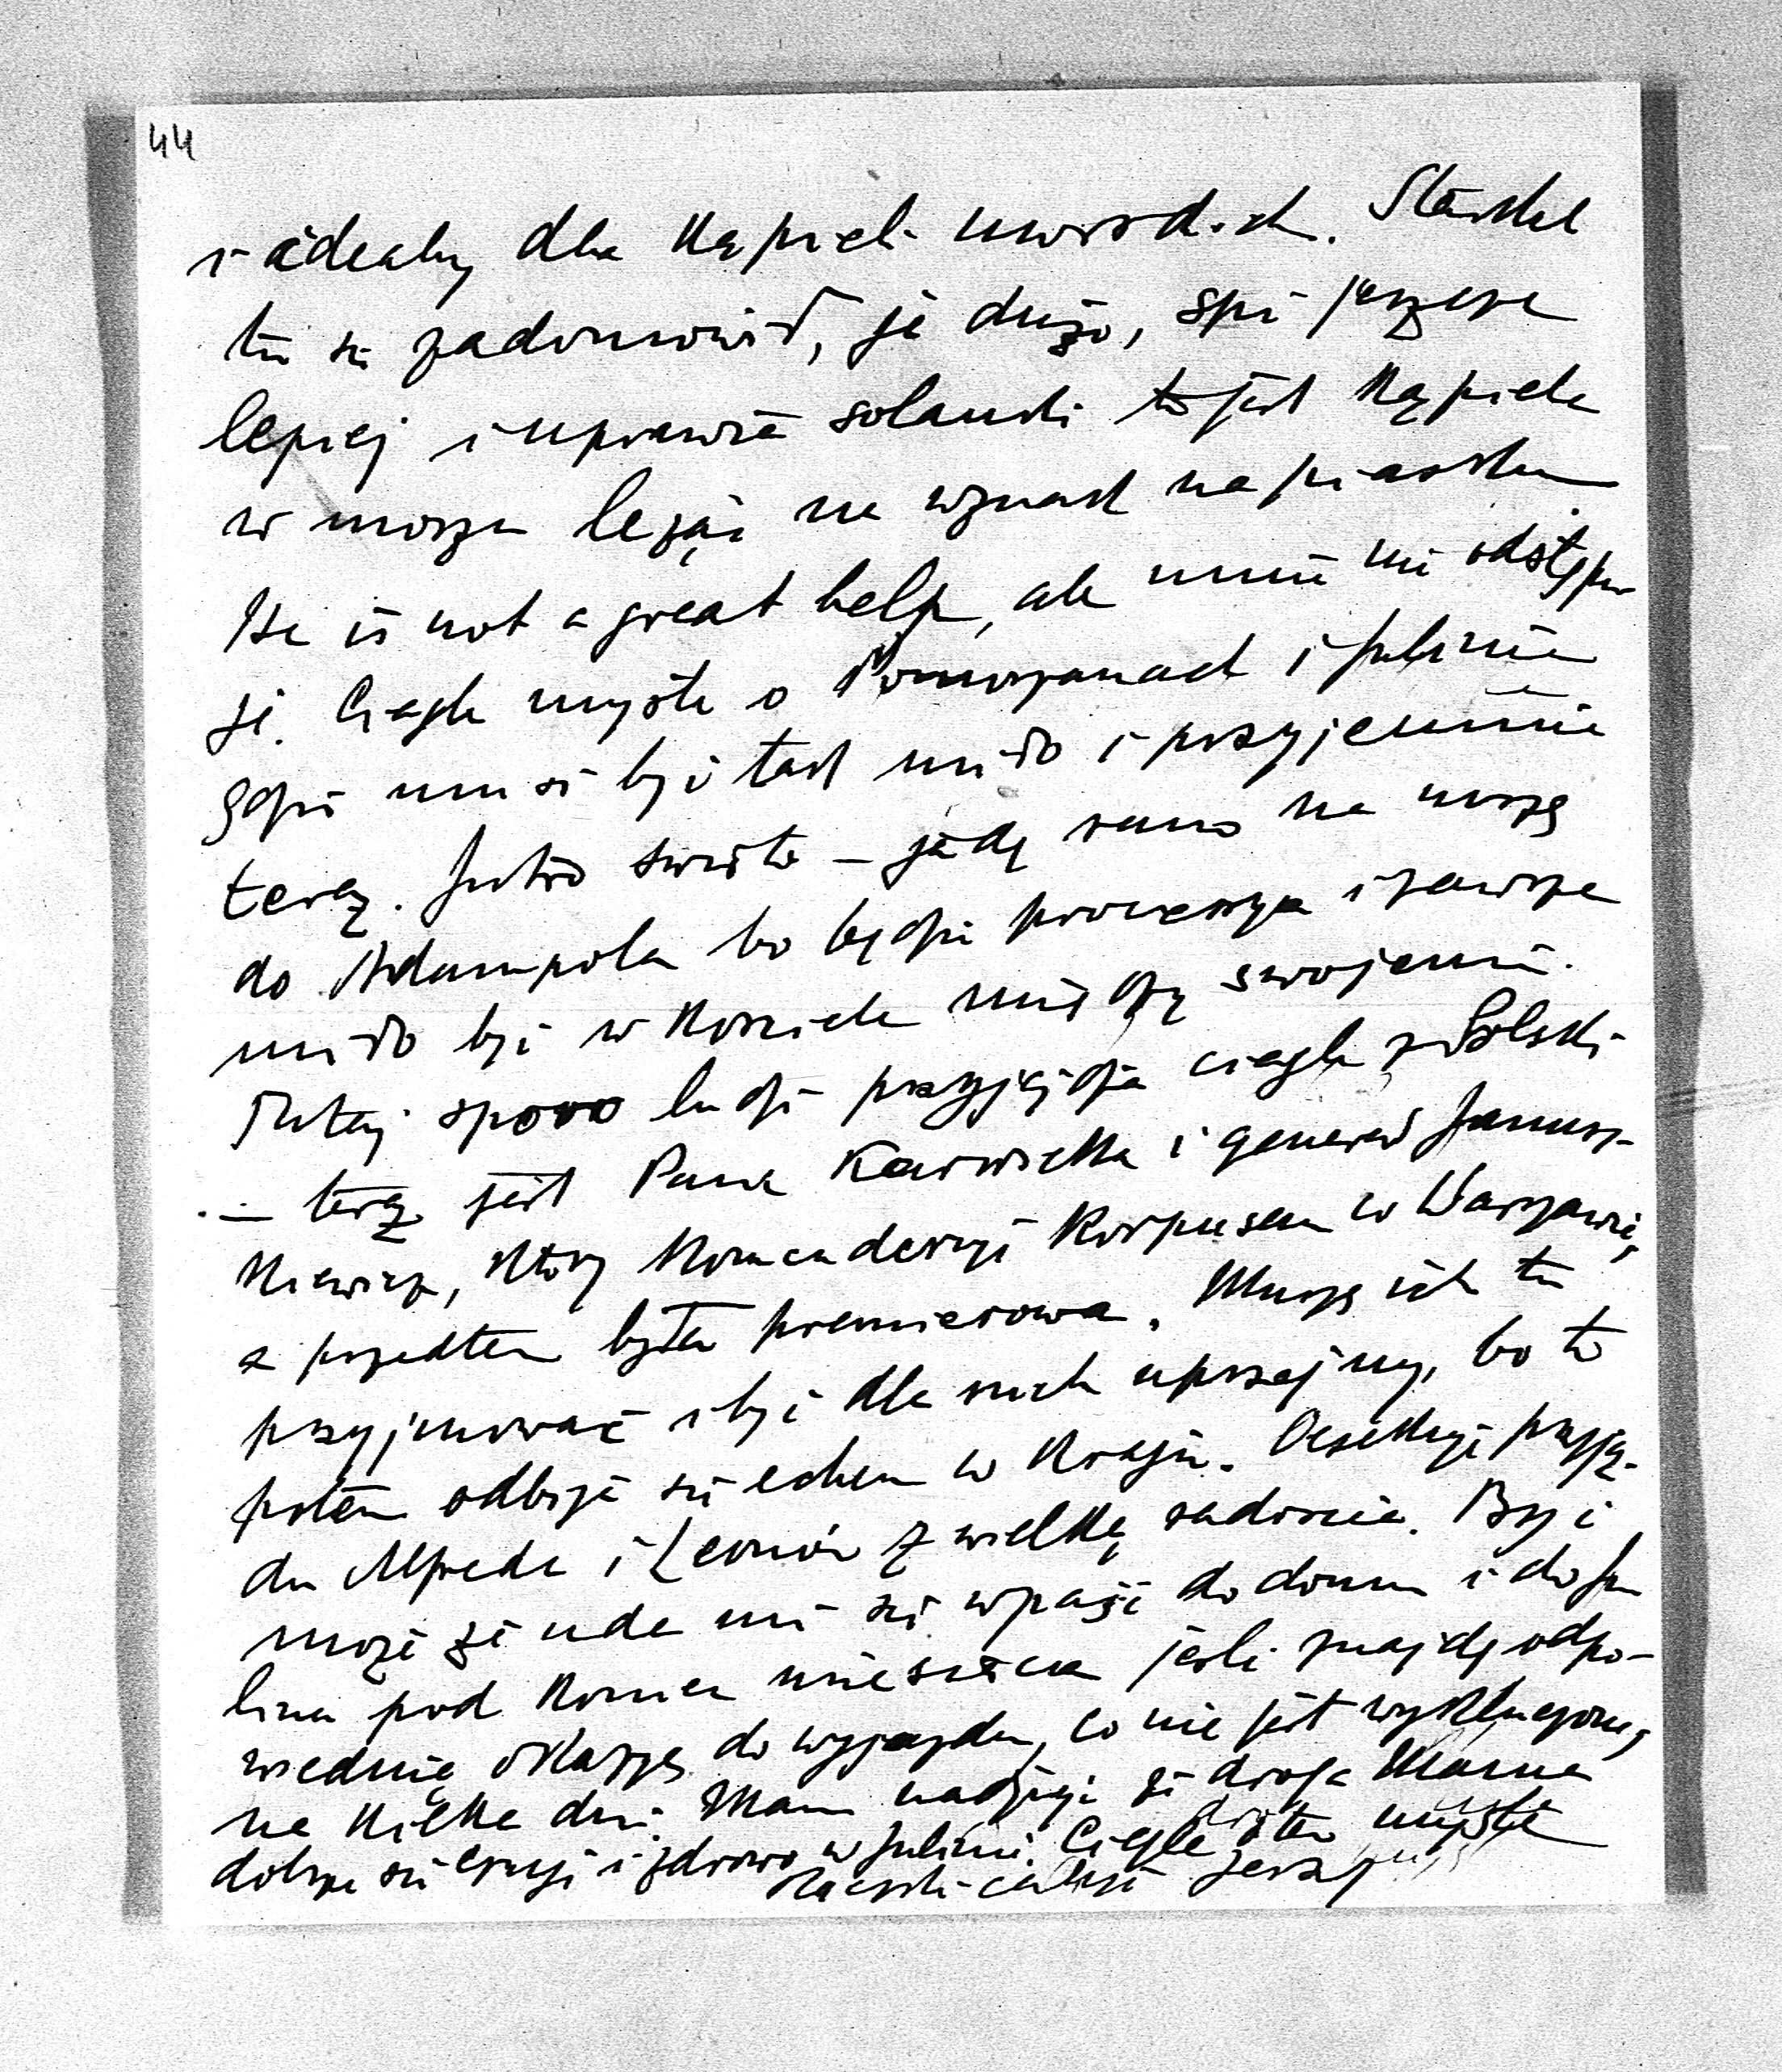 44
i idealny dla kąpieli morskich. Stasiek
tu się zadomowił, je dużo, śpi jeszcze
lepiej i uprawia solanki to jest kąpiele
w morzu leżąc na wznak na piasku.
He is not a great help, ale mnie nie odstępu-
je. Ciągle myślę o Pomorzanach i Julinie
gdzie musi być tak miło i przyjemnie
teraz. Jutro święto – jadę rano na mszę
do Adampola bo będzie procesya i zawsze
miło być w kościele między swojemi.
Tutaj sporo ludzi przyjeżdża ciągle z Polski
– teraz jest Pani Karwicka i generał Janusz-
kiewicz, który komenderuje Korpusem w Warszawie,
a przedtem była premierowa. Muszę ich tu
przyjmować i być dla nich uprzejmy, bo to
potem odbija się echem w kraju. Oczekuję przyja-
zdu Alfreda i Leonów z wielką radością. Być
może że uda mi się wpaść do domu i do Ju
lina pod koniec miesiąca jeśli znajdę odpo-
wiednią okazyę do wyjazdu, co nie jest wykluczone,
na kilka dni. Mam nadzieję że droga Mama
dobrze się czuje i zdrowo w Julinie. Ciągle o tem myślę
Rączki całuję Jerzy